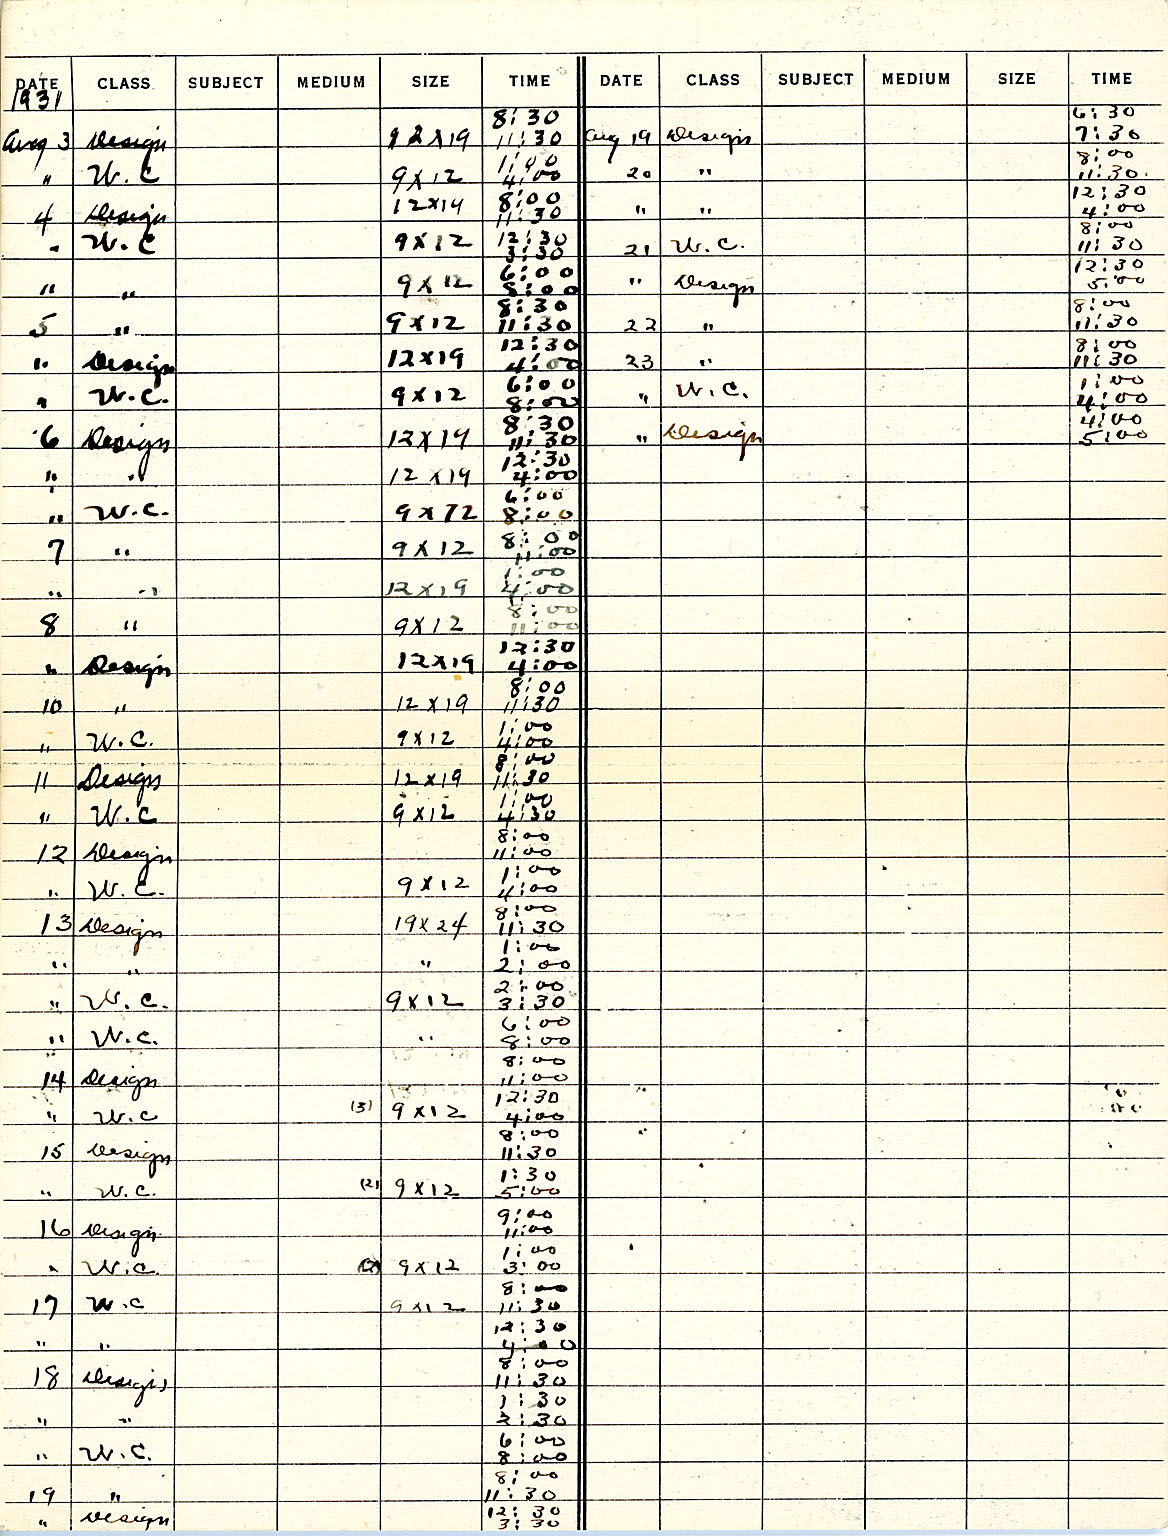 DATE CLASS SUBJECT MEDIUM SIZE TIME DATE CLASS SUBJECT MEDIUM SIZE TIME
1931
Aug 3 Design 12x19 8:30 11:30 Aug 19 Design 6:30 7:30
" W.C 9x12 1:00 4:00 20 " 8:00 11:30
4 Design 12x19 8:00 11:30 " " 12:30 4:00
" W.C 9x12 12:30 3:30 21 W.C. 8:00 11:30
" " 9x12 6:00 8:00 " Design 12:30 5:00
5 " 9x12 8:30 11:30 22 " 8:00 11:30
" Design 12x19 12:30 4:00 23 " 8:00 11:30
" W.C. 9x12 6:00 8:00 " W.C. 1:00 4:00
6 Design 12x19 8:30 11:30 " Design 4:00 5:00
" " 12x19 12:30 4:00
" W.C. 9x72 6:00 8:00
7 " 9x12 8:00 11:00
" " 12x19 1:00 4:00
8 " 9x12 8:00 11:00
" Design 12x19 12:30 4:00
10 " 12x19 8:00 11:30
" W.C. 9x12 1:00 4:00
11 Design 12x19 8:00 11:30
" W.C 9x12 1:00 4:30
12 Design 8:00 11:00
" W.C. 9x12 1:00 4:00
13 Design 19x24 8:00 11:30
" " " 1:00 2:00
" W.C. 9x12 2:00 3:30
" W.C. " 6:00 8:00
14 Design 8:00 11:00
" W.C (3) 9x12 12:30 4:00
15 Design 8:00 11:30
" W.C. (2) 9x12 1:30 5:00
16 Design 9:00 11:00
" W.C. 9x12 1:00 3:00
17 W.C 9x12 8:00 11:30
" " 12:30 4:00
18 Design 8:00 11:30
" " 1:30 2:30
" W.C. 6:00 8:00
19 " 8:00 11:30
" Design 12:30 3:30